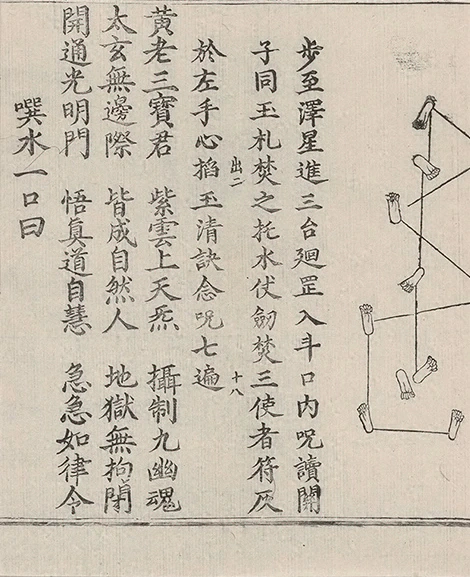 步至澤星進三台廻罡入斗口内呪讀關
子同玉札焚之托水仗劒焚三使者符灰
出二 十八
於左手心搯玉清訣念呪七遍
黃老三寶君 紫雲上天炁 攝制九幽魂
太玄無邊際 皆成自然人 地獄無拘閉
開通光明門 悟真道自慧 急急如律令
噀水一口曰